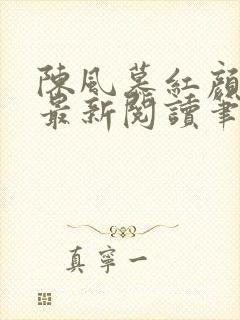 陳風慕紅顏
最新閱讀筆
真寧一